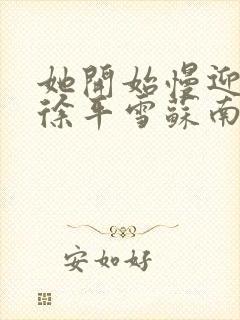 她開始慢迎
徐平雪蘇南
安如好